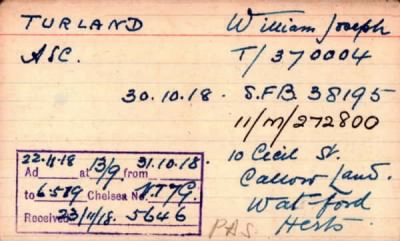 TURLAND William Joseph
ASC. T/370004
30.10.18. S.F.B. 38195
11/M/272800
10 Cecil St.
Callow Land.
Watford
Herts.
22.11.18 13/9 31.10.18.
Ad at from
to 6.5.19 Chelsea No.
Received 23/11/18. 5646
PAS.